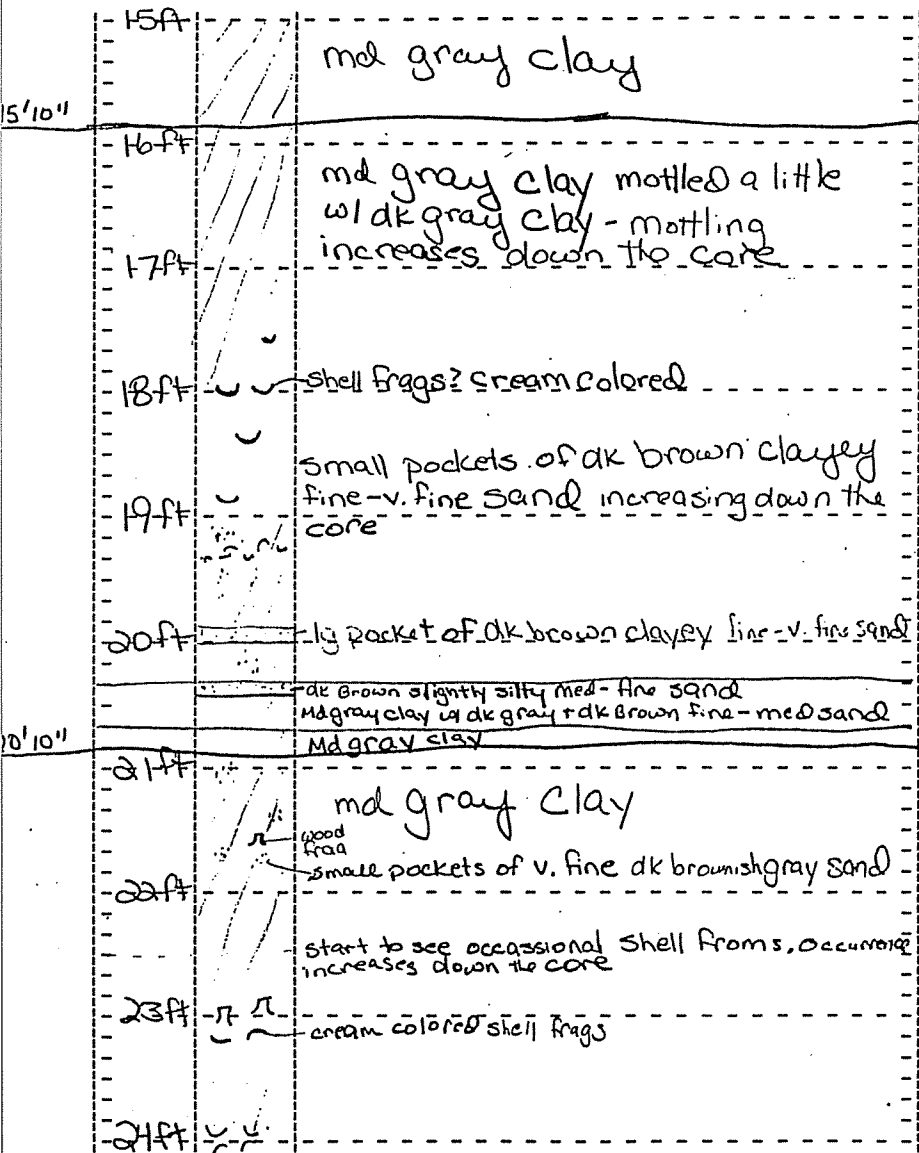 15ft
md gray clay
15'10"
16ft
md gray clay mottled a little
w/ dk gray clay - mottling
increases down the core
17ft
18ft
shell frags? cream colored
small pockets of dk brown clayey
fine-v. fine sand increasing down the
core
19ft
20ft
lg pocket of dk brown clayey fine-v. fine sand
dk Brown slightly silty med-fine sand
Md gray clay w/ dk gray + dk Brown fine-med sand
Md gray clay
0'10"
21ft
md gray clay
wood
frag
small pockets of v. fine dk brownish gray sand
22ft
start to see occassional shell
increases down the core
23ft
cream colored shell frags
24ft